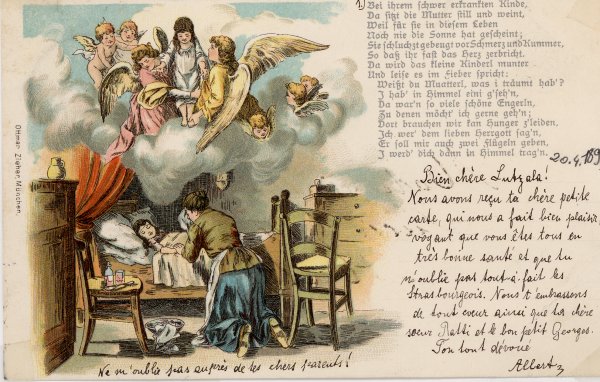 1.) Bei ihrem schwer erkrankten Kinde,
Da sitzt die Mutter still und weint,
Weil für sie in diesem Leben
Noch nie die Sonne hat gescheint;
Sie schluchzt gebeugt vor Schmerz und Kummer,
So daß ihr fast das Herz zerbricht.
Da wird das kleine Kinderl munter
Und leise es im Fieber spricht:
Weißt du Muatterl, was i träumt hab'?
I hab' in Himmel eini g'seh'n,
Da war'n so viele schöne Engerln,
Zu denen möcht' ich gerne geh'n;
Dort brauchen wir kan Hunger z'leiden,
Ich wer' dem lieben Herrgott sag'n,
Er soll mir auch zwei Flügeln geben,
I werd' dich dann in Himmel trag'n.
20.4.189
Bien chère Lutzala!
Nous avons reçu ta chère petite
carte, qui nous a fait bien plaisir
voyant que vous êtes tous en
très bonne santé et que tu
n'oublie pas tout-à-fait les
Strasbourgeois. Nous t'embrassons
de tout coeur ainsi que ta chère
soeur Ratti et le bon petit Georges.
Ton tout dévoué
Albert
Ne m'oublie pas auprès de tes chers parents!
Ottmar Zieher, München.